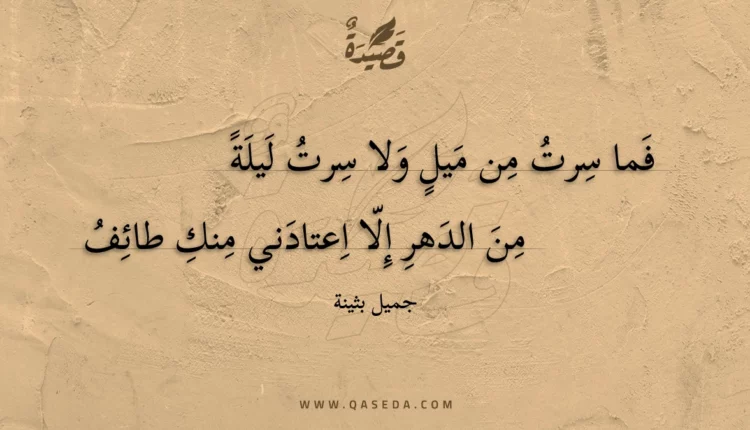 قَصِيْدَةٌ
فَما سِرتُ مِن مَيلٍ وَلا سِرتُ لَيلَةً
مِنَ الدَهرِ إِلّا اِعتادَني مِنكِ طائِفُ
جميل بثينة
WWW.QASEDA.COM